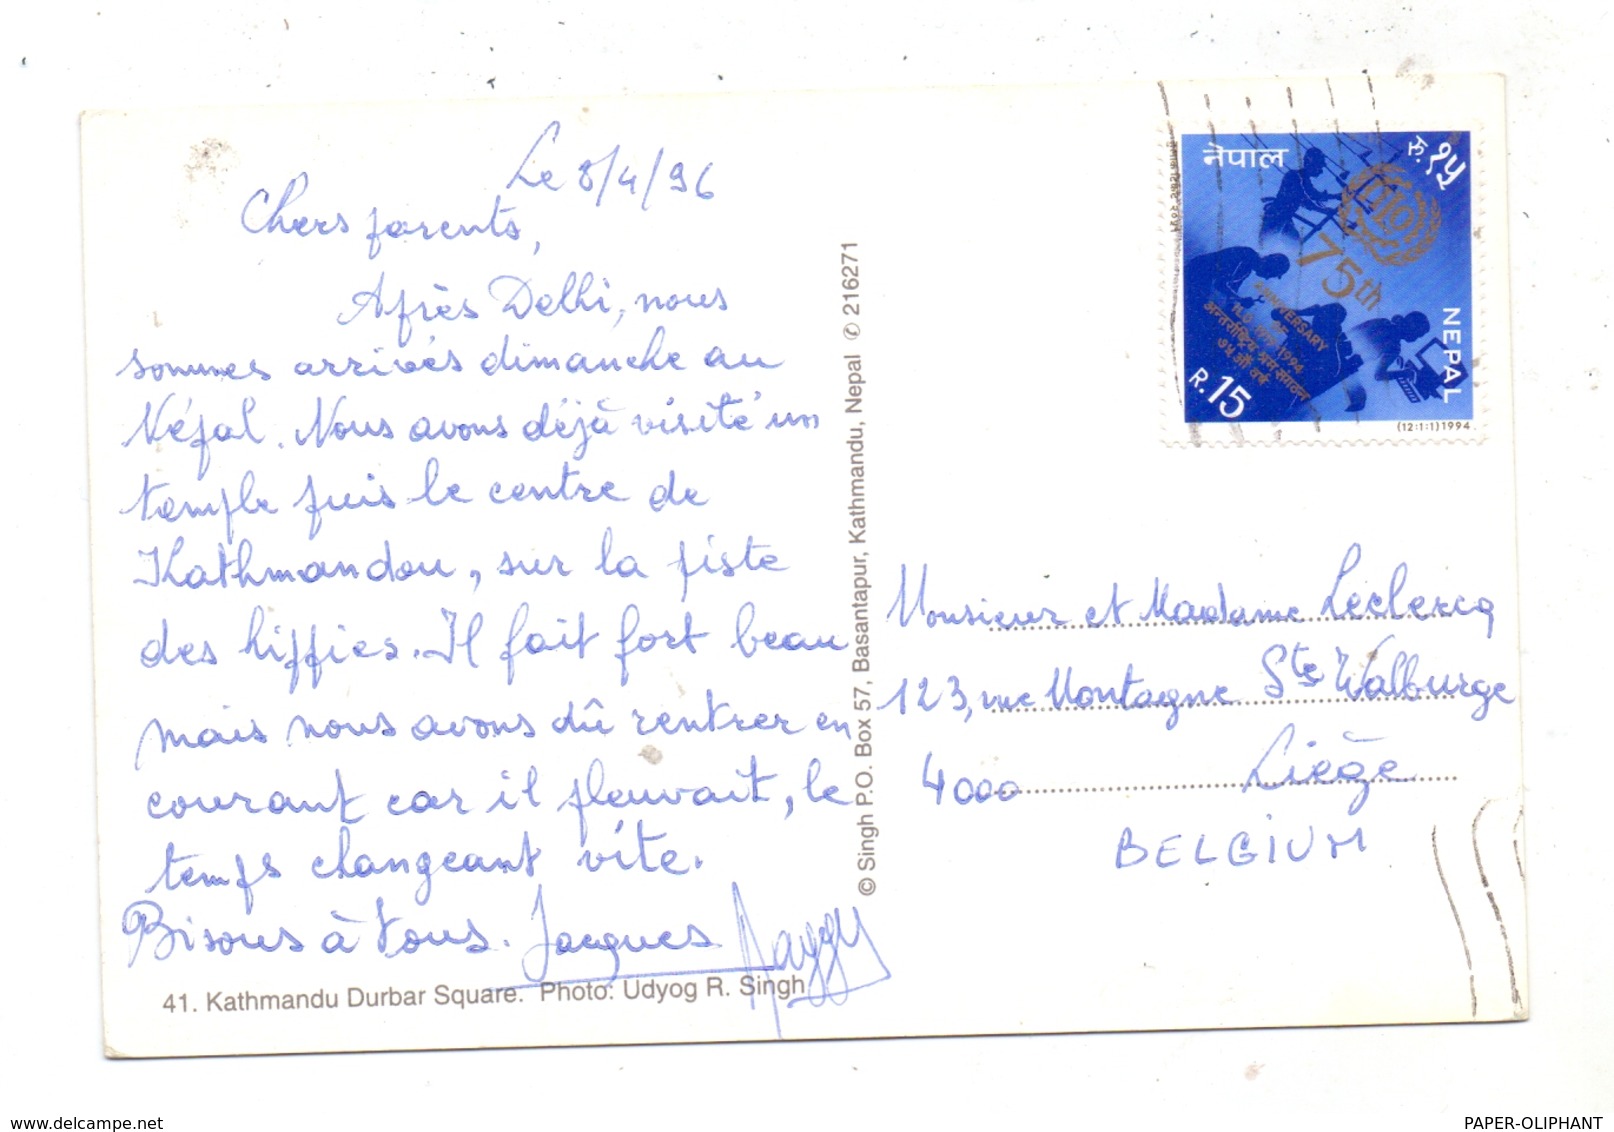 Le 8/4/96
Chers parents,
Après Delhi, nous
sommes arrivés dimanche au
Népal. Nous avons déjà visité un
temple puis le centre de
Kathmandou, sur la piste
des hippies. Il fait fort beau
mais nous avons dû rentrer en
courant car il pleuvait, le
temps changeant vite.
Bisous à tous. Jacques Maggy
41. Kathmandu Durbar Square. Photo: Udyog R. Singh
© Singh P.O. Box 57, Basantapur, Kathmandu, Nepal ✆ 216271
नेपाल
रु. १५
ILO
75th
ANNIVERSARY
1919-1994
अन्तर्राष्ट्रिय श्रम संगठन
७५ औं वर्ष
NEPAL
R. 15
(12:1:1)1994.
Monsieur et Madame Leclercq
123, rue Montagne Ste Walburge
4000 Liège
BELGIUM
www.delcampe.net
PAPER-OLIPHANT